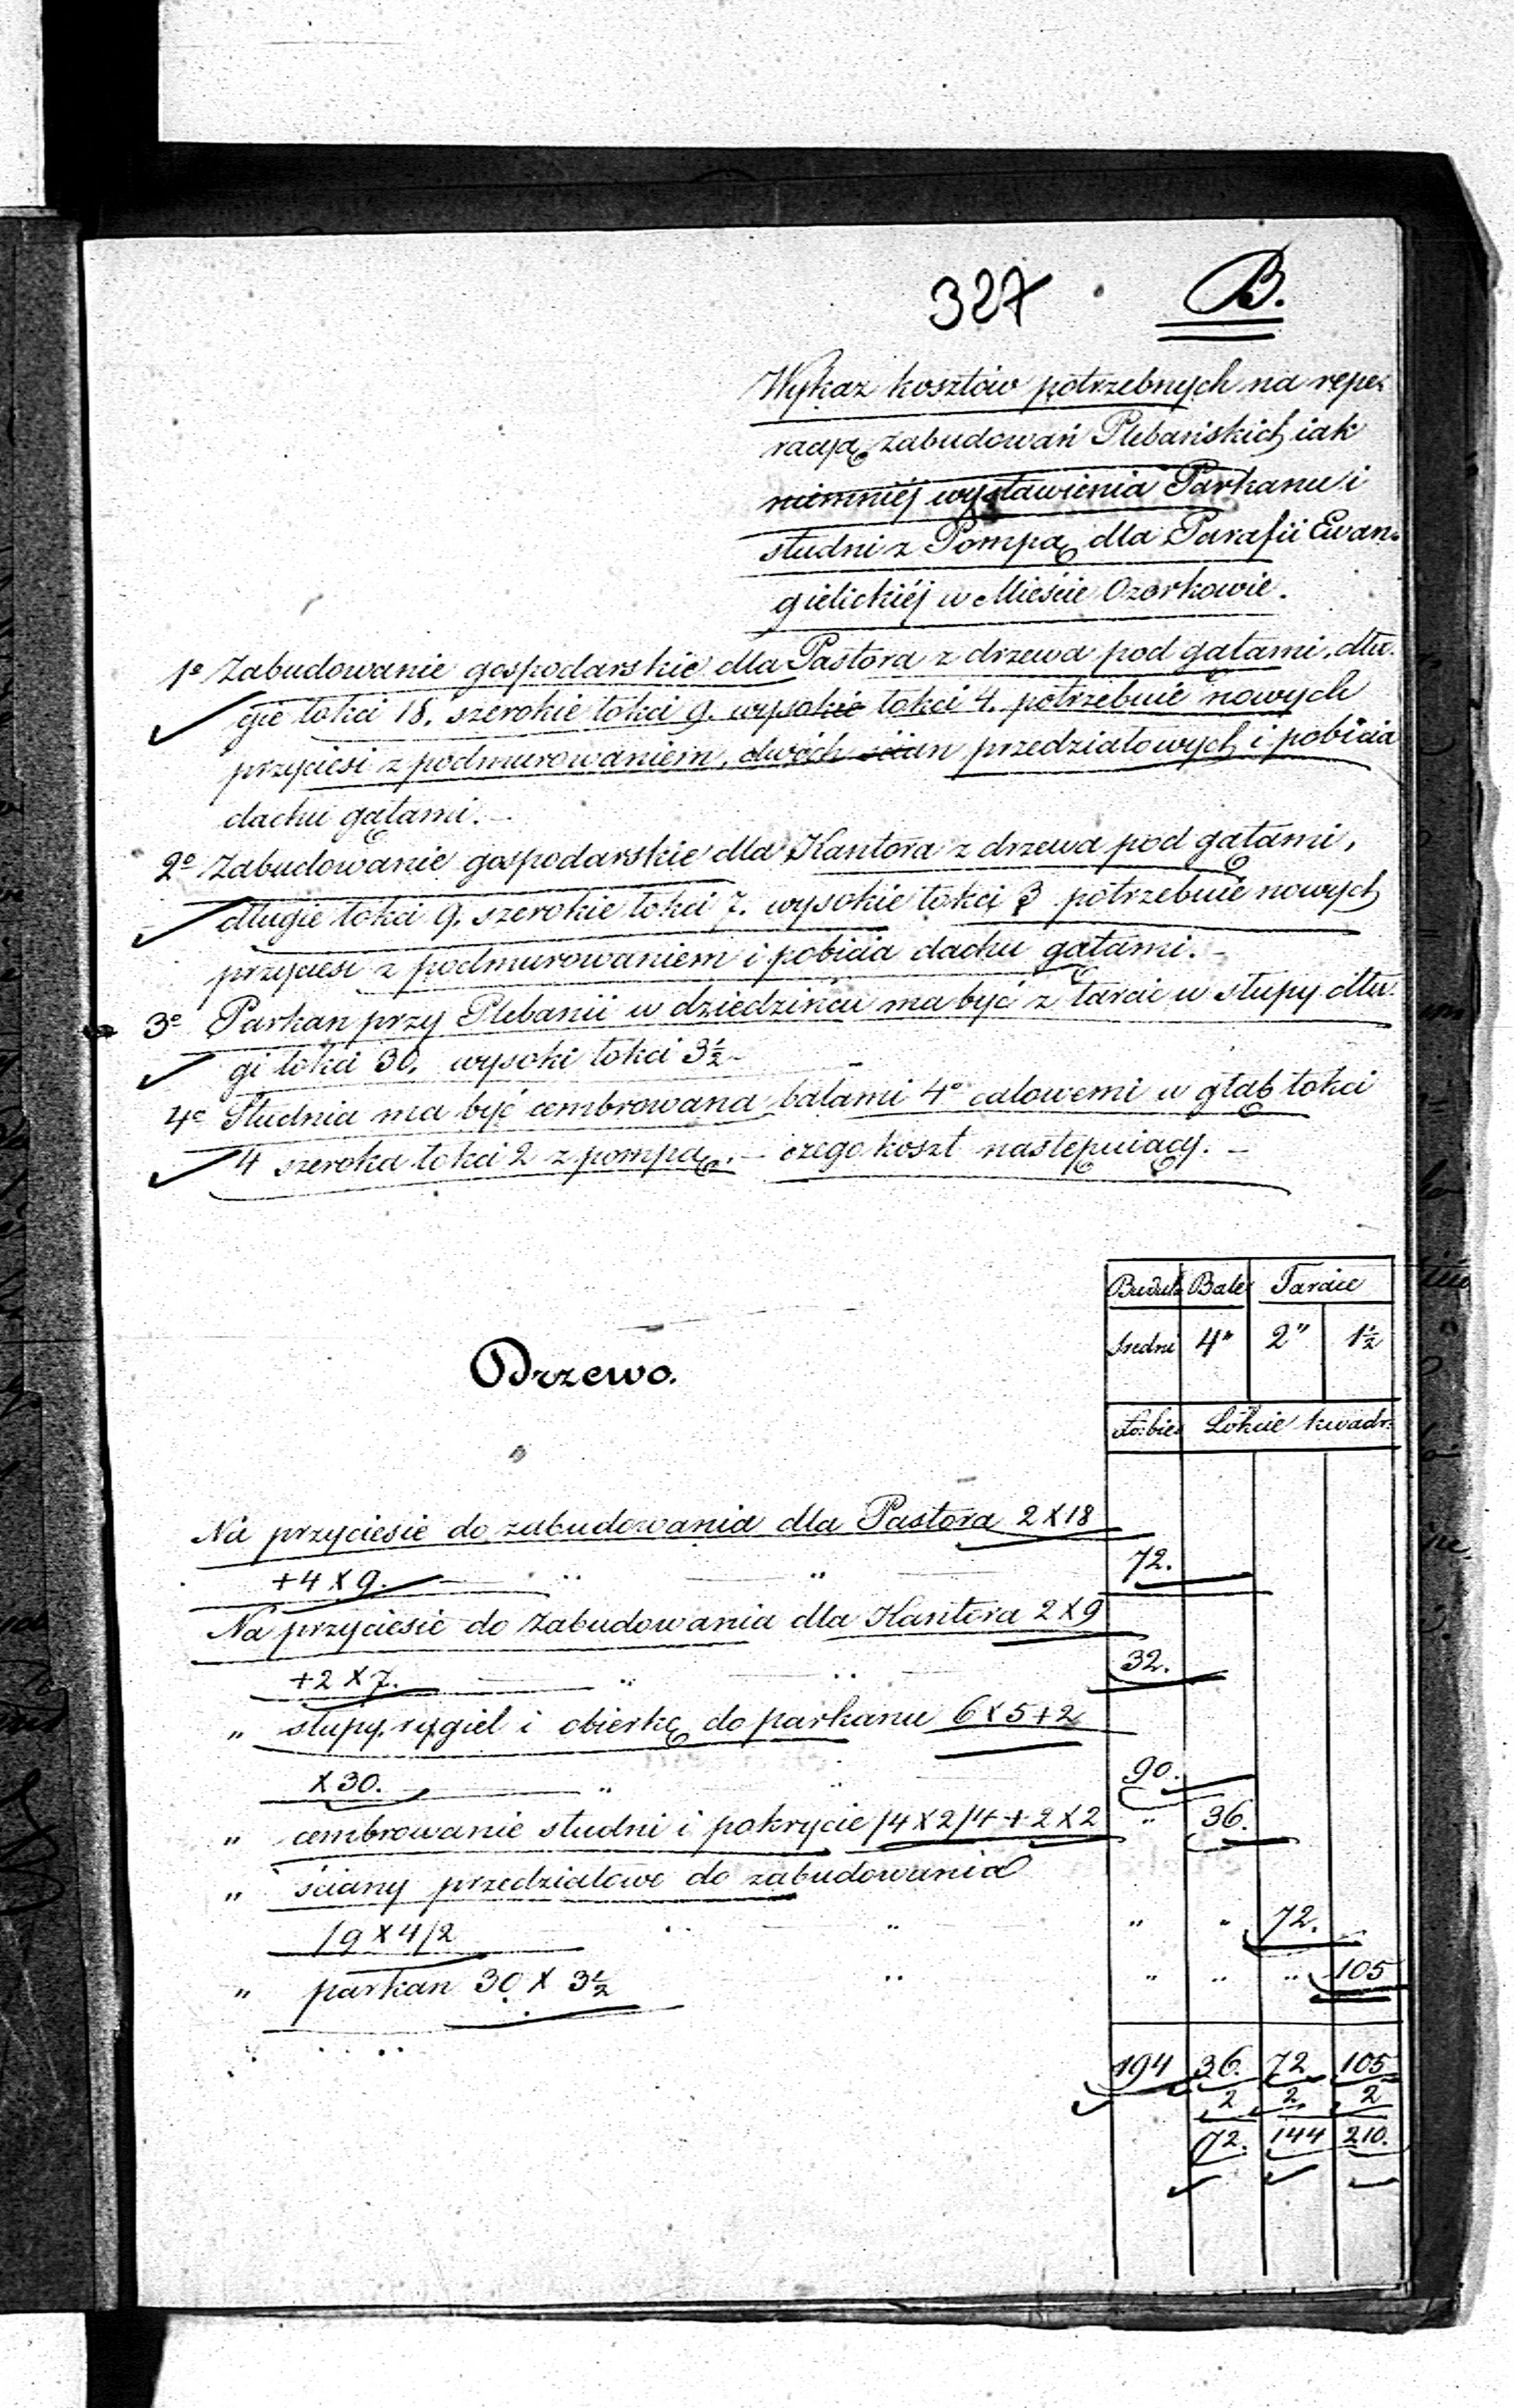 327 B.
Wykaz kosztów potrzebnych na repe-
racyą zabudowań Plebańskich iak
niemniéj wystawienia Parkanu i
studni z Pompą dla Parafii Ewan-
gielickiéj w Mieście Ozorkowie.
1o Zabudowanie gospodarskie dla Pastora z drzewa pod gątami, dłu-
gie łokci 18. szerokie łokci 9. wysokie łokci 4. potrzebuie nowych
przyciesi z podmurowaniem, dwóch ścian przedziałowych i pobicia
dachu gątami. -
2o Zabudowanie gospodarskie dla Kantora z drzewa pod gątami,
długie łokci 9. szerokie łokci 7. wysokie łokci 3 potrzebuie nowych
przyciesi z podmurowaniem i pobicia dachu gątami. -
3o Parkan przy Plebanii w dziedzińcu ma być z tarcic w słupy dłu-
gi łokci 30. wysoki łokci 3½ -
4o Studnia ma być cembrowana balami 4o calowemi w głąb łokci
4 szeroka łokci 2 z pompą. - czego koszt następuiący. -
Budul Bale Tarcice
Drzewo.
Sredni 4" 2" 1½
Ło: bie Łokcie kwadr.
Na przyciesie do zabudowania dla Pastora 2 X 18
+ 4 X 9. " " 72.
Na przyciesie do zabudowania dla Kantora 2 X 9
+ 2 X 7. " " 32.
" słupy, rygiel i obierkę do parkanu 6 X 5 + 2
X 30. " " 90.
" cembrowanie studni i pokrycie /4 X 2/4 + 2 X 2 " 36.
" ściany przedziałowe do zabudowania
/9 X 4/2 " " " " 72.
" parkan 30 X 3½ " " " " 105
194 36. 72 105
2 2 2
72. 144 210.